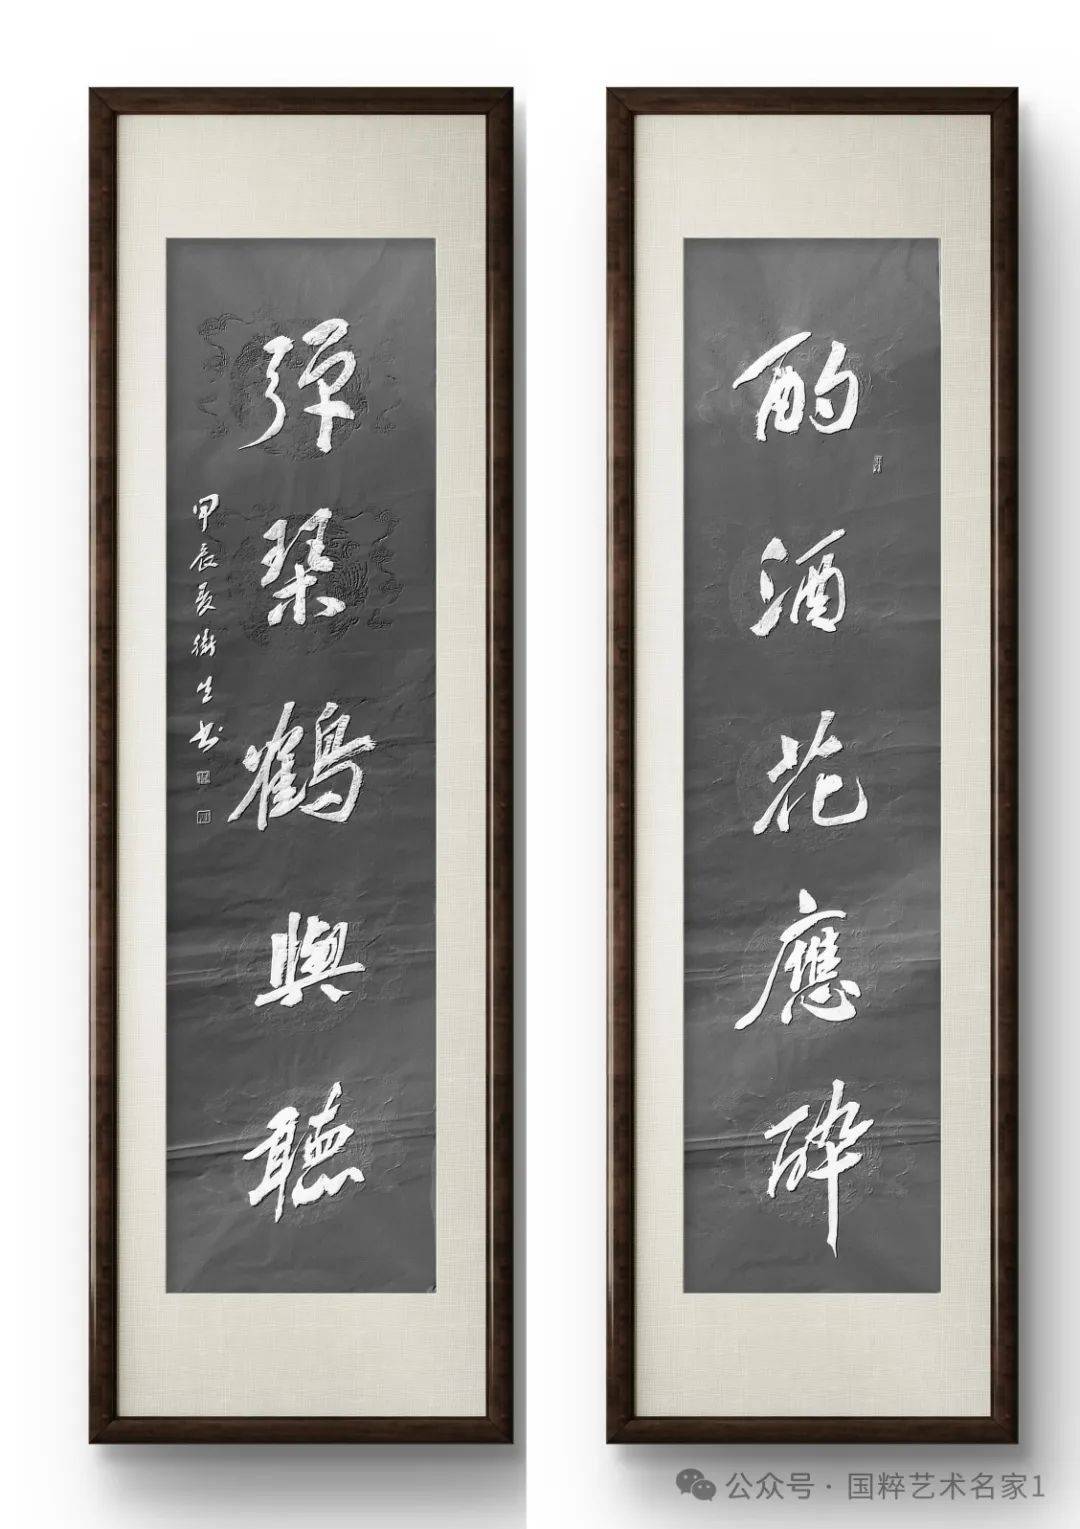 酌酒花應醉
彈琹鶴與聽
甲辰夏衛生书
公众号·国粹艺术名家1